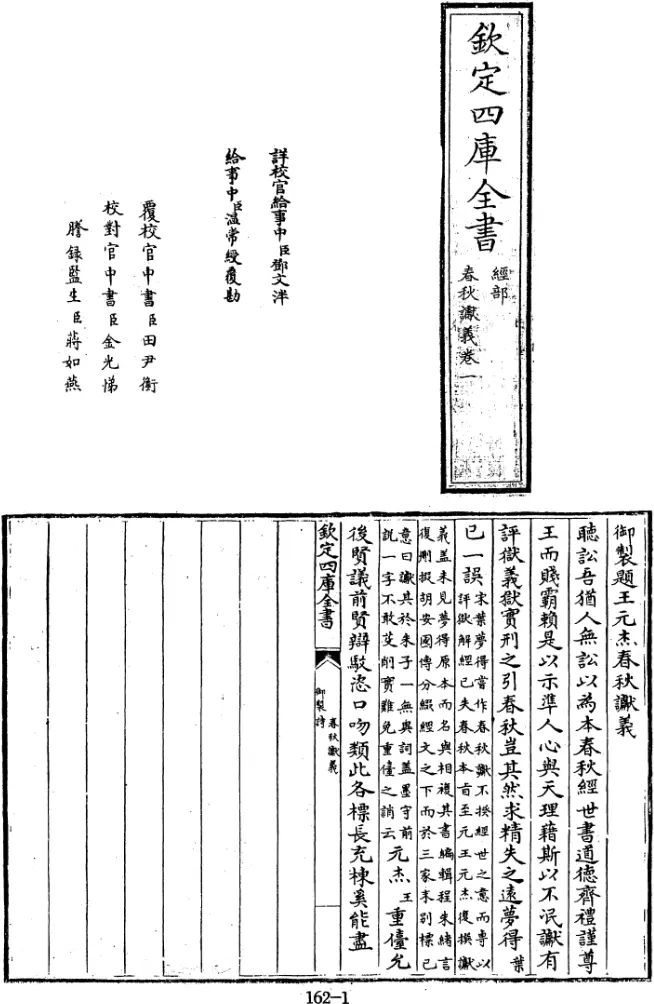 欽定四庫全書
經部
春秋讞義卷一
詳校官給事中臣鄭文泮
給事中臣溫常綬覆勘
覆校官中書臣田尹衡
校對官中書臣金光悌
謄錄監生臣蔣如燕
御製題王元杰春秋讞義
聽訟吾猶人無訟以為本春秋經世書道德齊禮謹尊
王而賤霸賴是以示準人心與天理藉斯以不泯讞有
評獄義獄實刑之引春秋豈其然求精失之遠夢得葉
已一誤宋葉夢得嘗作春秋讞不揆經世之意而專以
評獄解經已失春秋本旨至元王元杰復撰讞
義蓋未見夢得原本而名與相複其書編輯程朱緒言
復刪掇胡安國傳分綴經文之下而於三家末別標己
意曰讞其於朱子一無異詞蓋墨守前
說一字不敢芟削實難免重儓之誚云元杰王重儓允
後賢議前賢辯駁恣口吻類此各標長充棟奚能盡
欽定四庫全書
御製詩
春秋讞義
162-1